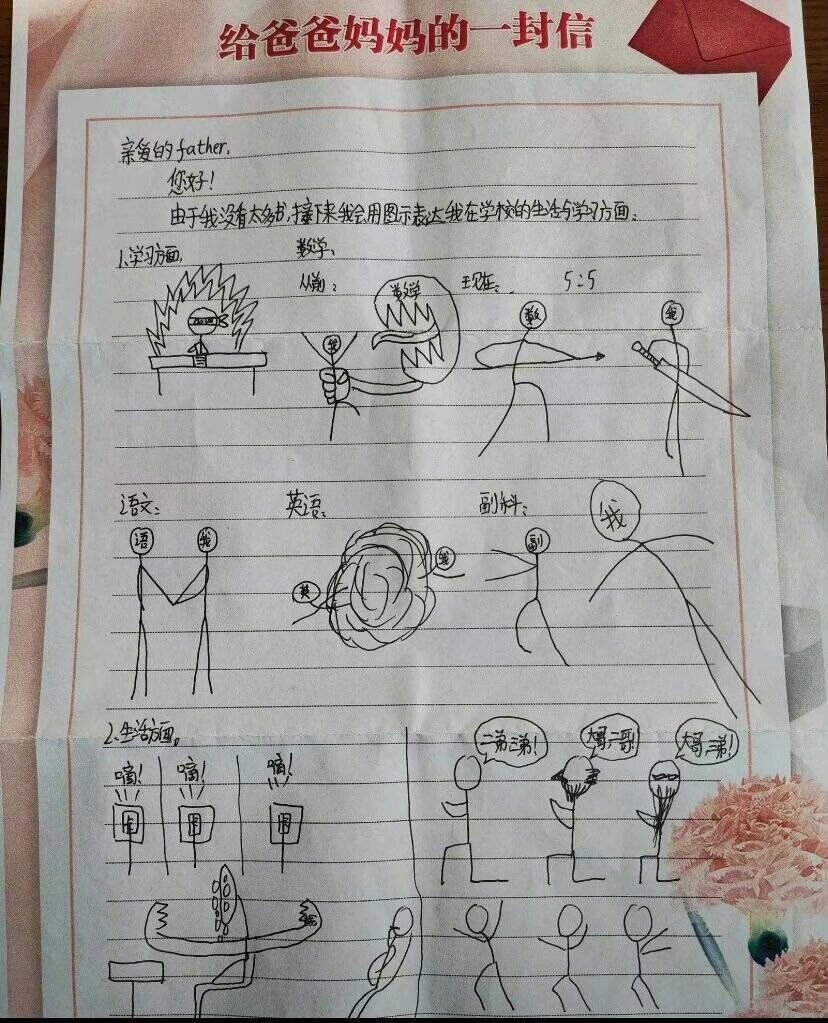 给爸爸妈妈的一封信
亲爱的father.
您好！
由于我没有太多书,接下来我会用图示表达我在学校的生活与学习方面：
1.学习方面. 数学：
从前： 数学 我 现在： 5:5 数 我
语文： 英语： 副科：
语 我 英 我 副 我
2.生活方面。
二弟三弟！ 大哥二哥！ 大哥三弟！
嘀！ 嘀！ 嘀！
卡 卡 卡